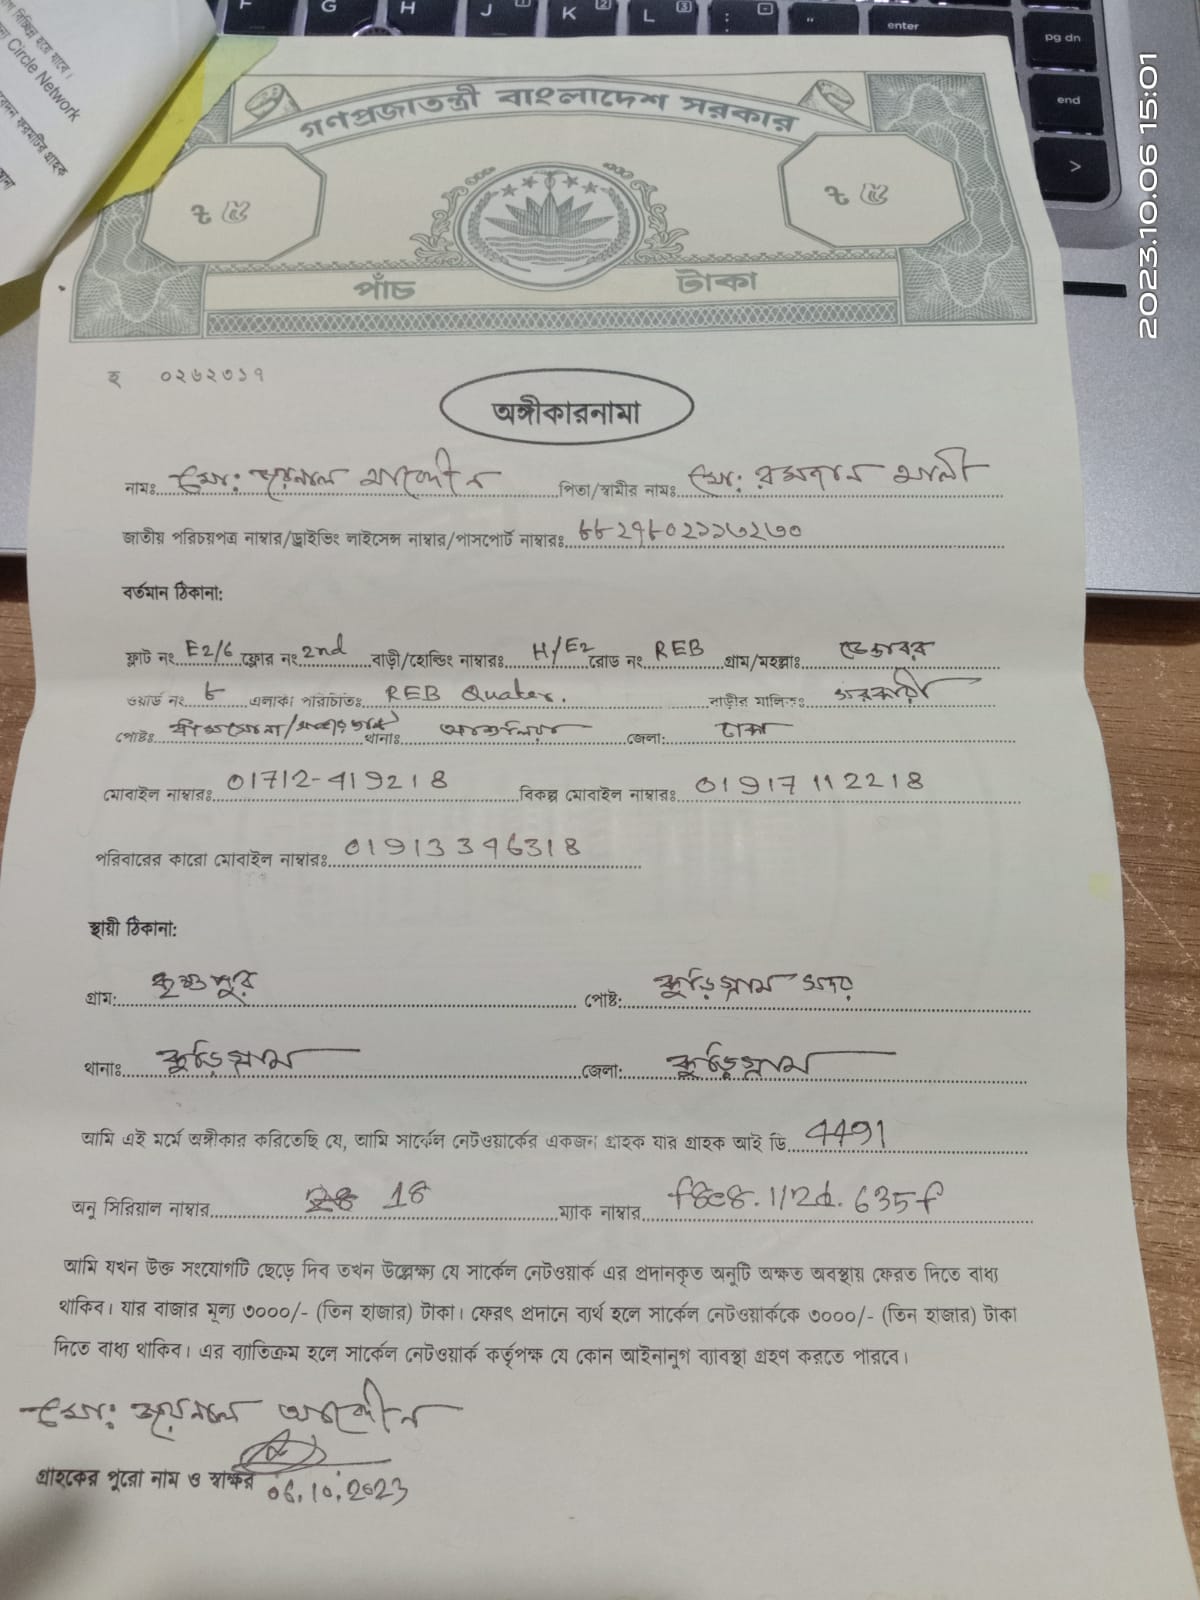 F G H J K L : " enter
pg dn
end
>
2023.10.06 15:01
Circle Network
গণপ্রজাতন্ত্রী বাংলাদেশ সরকার
৳ ৫ ৳ ৫
পাঁচ টাকা
হ ০২৬২৩১৭
অঙ্গীকারনামা
নামঃ মো: জয়নাল আবেদীন পিতা/স্বামীর নামঃ মো: রমজান আলী
জাতীয় পরিচয়পত্র নাম্বার/ড্রাইভিং লাইসেন্স নাম্বার/পাসপোর্ট নাম্বারঃ
বর্তমান ঠিকানা:
ফ্লাট নং E2/6 ফ্লোর নং 2nd বাড়ী/হোল্ডিং নাম্বারঃ H/E2 রোড নং REB গ্রাম/মহল্লাঃ ডেন্ডাবর
ওয়ার্ড নং ৮ এলাকা পরিচিতিঃ REB Quater. বাড়ীর মালিকঃ সরকারী
পোষ্টঃ থানাঃ আশুলিয়া জেলা: ঢাকা
মোবাইল নাম্বারঃ 01712-419218 বিকল্প মোবাইল নাম্বারঃ 01917112218
পরিবারের কারো মোবাইল নাম্বারঃ 01913346318
স্থায়ী ঠিকানা:
গ্রাম: কৃষ্ণপুর পোষ্ট: কুড়িগ্রাম সদর
থানাঃ কুড়িগ্রাম জেলা: কুড়িগ্রাম
আমি এই মর্মে অঙ্গীকার করিতেছি যে, আমি সার্কেল নেটওয়ার্কের একজন গ্রাহক যার গ্রাহক আই ডি 4491
অনু সিরিয়াল নাম্বার 18 ম্যাক নাম্বার f8e8.112d.635f
আমি যখন উক্ত সংযোগটি ছেড়ে দিব তখন উল্লেক্ষ্য যে সার্কেল নেটওয়ার্ক এর প্রদানকৃত অনুটি অক্ষত অবস্থায় ফেরত দিতে বাধ্য
থাকিব। যার বাজার মূল্য ৩০০০/- (তিন হাজার) টাকা। ফেরৎ প্রদানে ব্যর্থ হলে সার্কেল নেটওয়ার্ককে ৩০০০/- (তিন হাজার) টাকা
দিতে বাধ্য থাকিব। এর ব্যাতিক্রম হলে সার্কেল নেটওয়ার্ক কর্তৃপক্ষ যে কোন আইনানুগ ব্যাবস্থা গ্রহণ করতে পারবে।
মো: জয়নাল আবেদীন
গ্রাহকের পুরো নাম ও স্বাক্ষর 06.10.2023